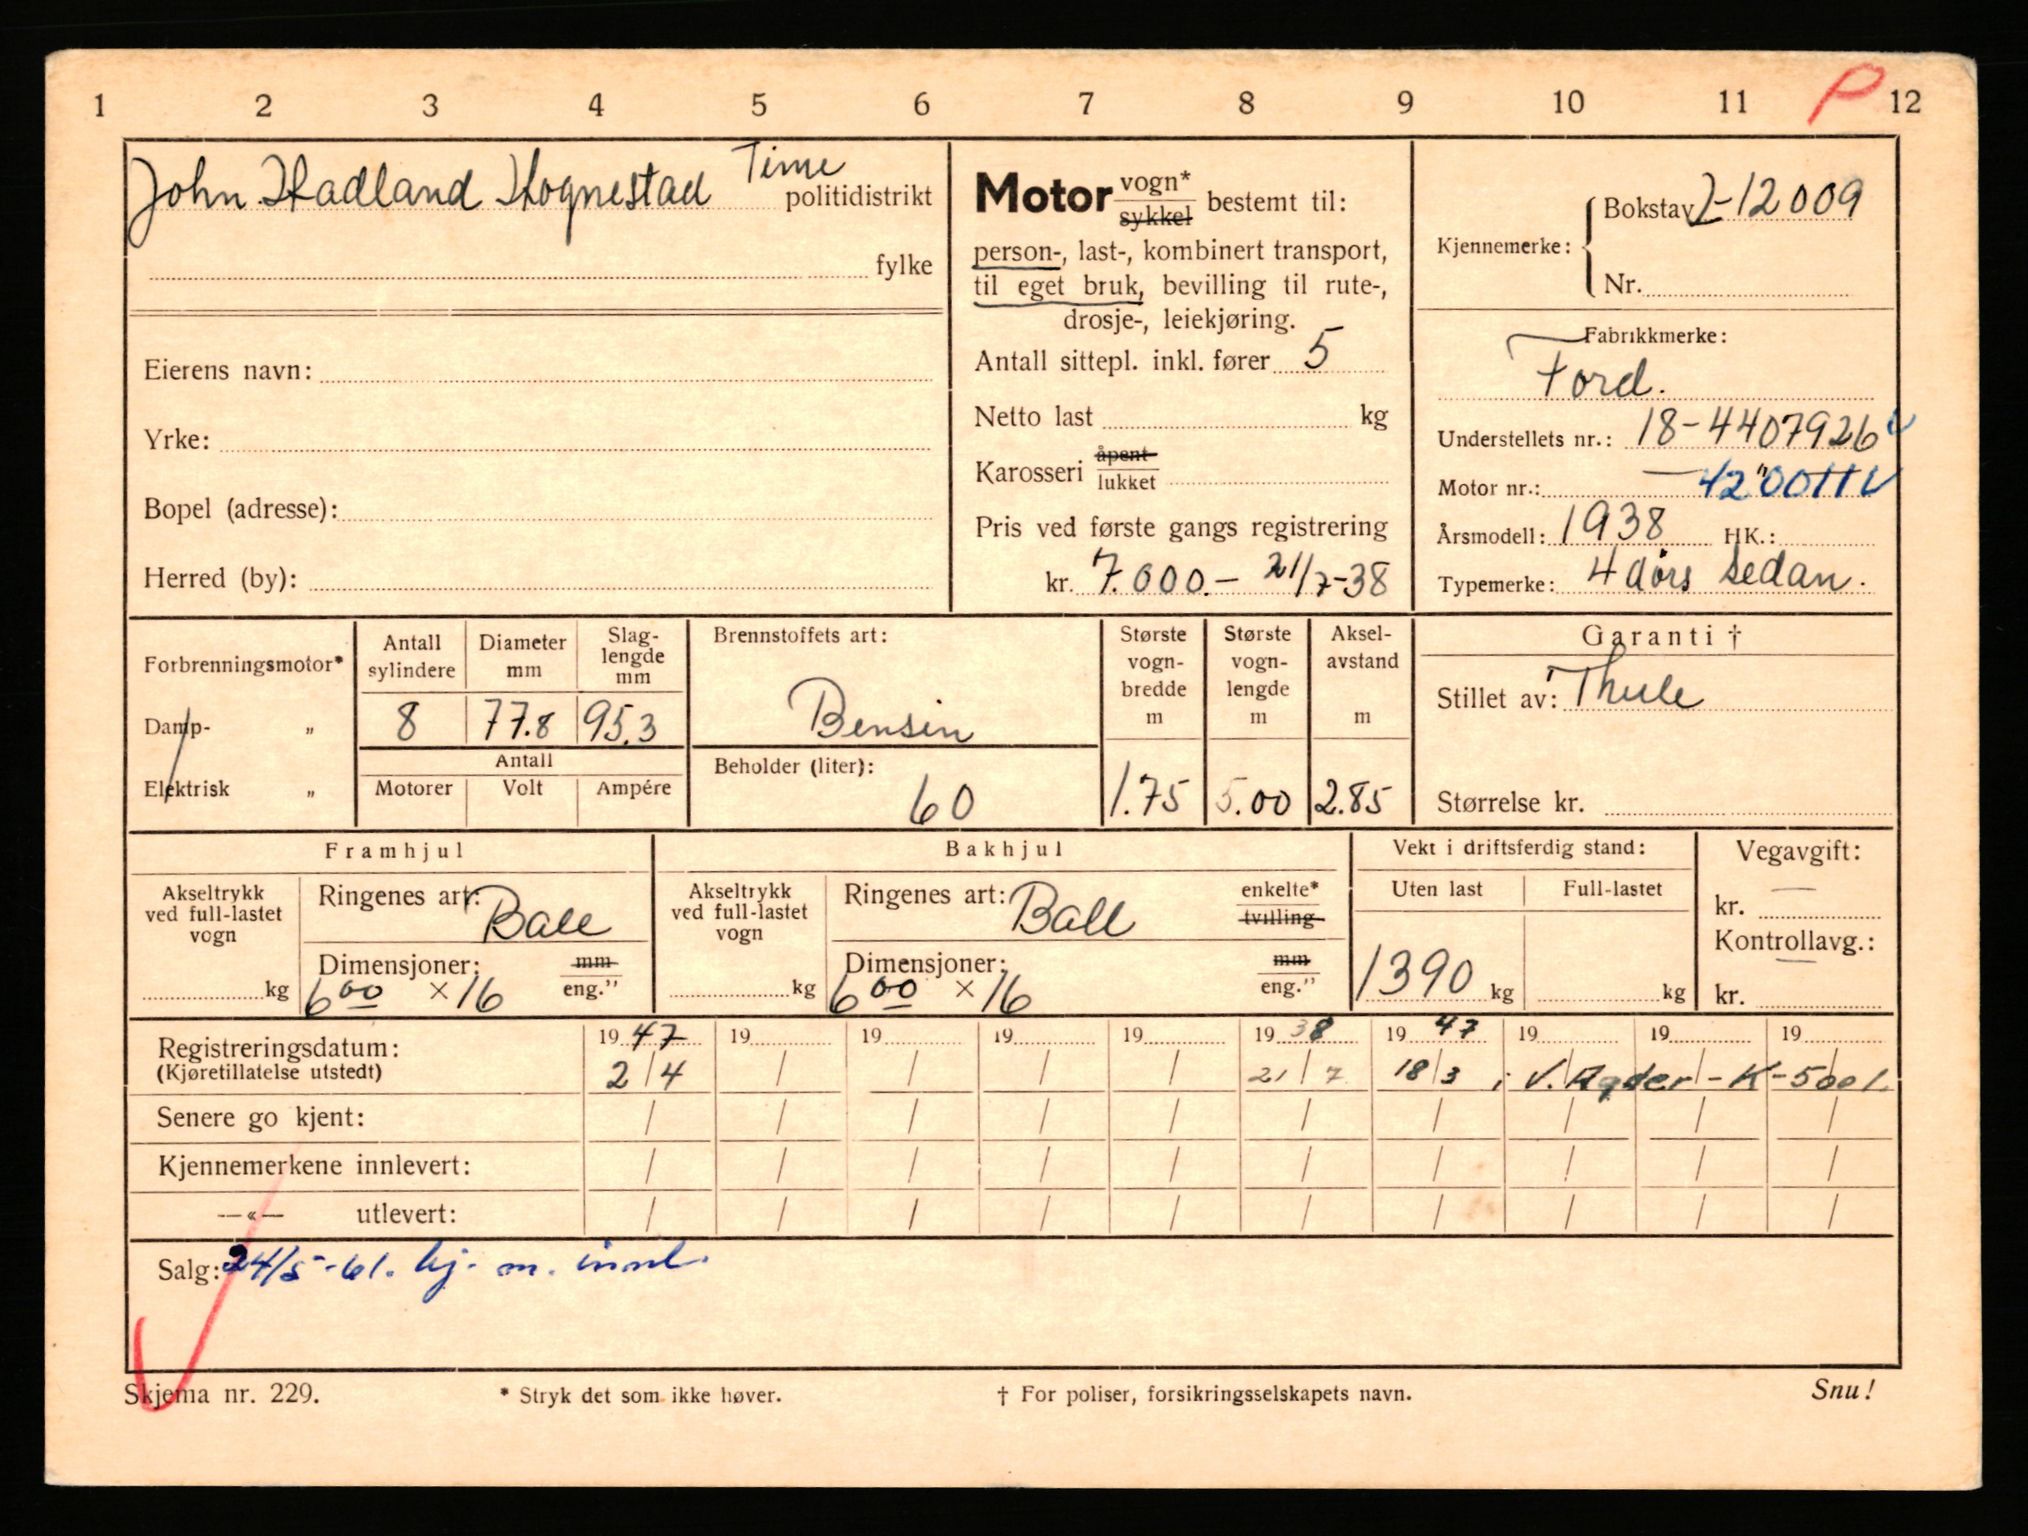 1 2 3 4 5 6 7 8 9 10 11 P 12
John Hadland Hognestad Time
politidistrikt
fylke
Eierens navn:
Yrke:
Bopel (adresse):
Herred (by):
Motor vogn* sykkel bestemt til:
person-, last-, kombinert transport,
til eget bruk, bevilling til rute-,
drosje-, leiekjøring.
Antall sittepl. inkl. fører 5
Netto last kg
Karosseri åpent lukket
Pris ved første gangs registrering
kr. 7.000.- 21/7-38
Kjennemerke: Bokstav L-12009
Nr.
Fabrikkmerke:
Ford.
Understellets nr.: 18-4407926
Motor nr.: 42"00
Årsmodell: 1938 HK.:
Typemerke: 4 dørs sedan.
Forbrenningsmotor*
Damp- „
Elektrisk „
Antall sylindere Diameter mm Slag-lengde mm
8 77.8 95.3
Antall
Motorer Volt Ampére
Brennstoffets art:
Bensin
Beholder (liter):
60
Største vogn-bredde m Største vogn-lengde m Aksel-avstand m
1.75 5.00 2.85
Garanti †
Stillet av: Thule
Størrelse kr.
Framhjul
Akseltrykk ved full-lastet vogn
kg
Ringenes art: Ball
Dimensjoner: mm eng."
6 00 × 16
Bakhjul
Akseltrykk ved full-lastet vogn
kg
Ringenes art: Ball enkelte* tvilling
Dimensjoner: mm eng."
6 00 × 16
Vekt i driftsferdig stand:
Uten last Full-lastet
1390 kg kg
Vegavgift:
kr. —
Kontrollavg.:
kr. —
Registreringsdatum: 19 47 19 19 19 19 19 38 19 47 19 19 19
(Kjøretillatelse utstedt) 2/4 / / / / 21/7 18/3 i V. Agder - K-5001.
Senere go kjent: / / / / / / / / / /
Kjennemerkene innlevert: / / / / / / / / / /
—«— utlevert: / / / / / / / / / /
Salg: 24/5-61. kj. m. innl.
Skjema nr. 229. * Stryk det som ikke høver. † For poliser, forsikringsselskapets navn. Snu!